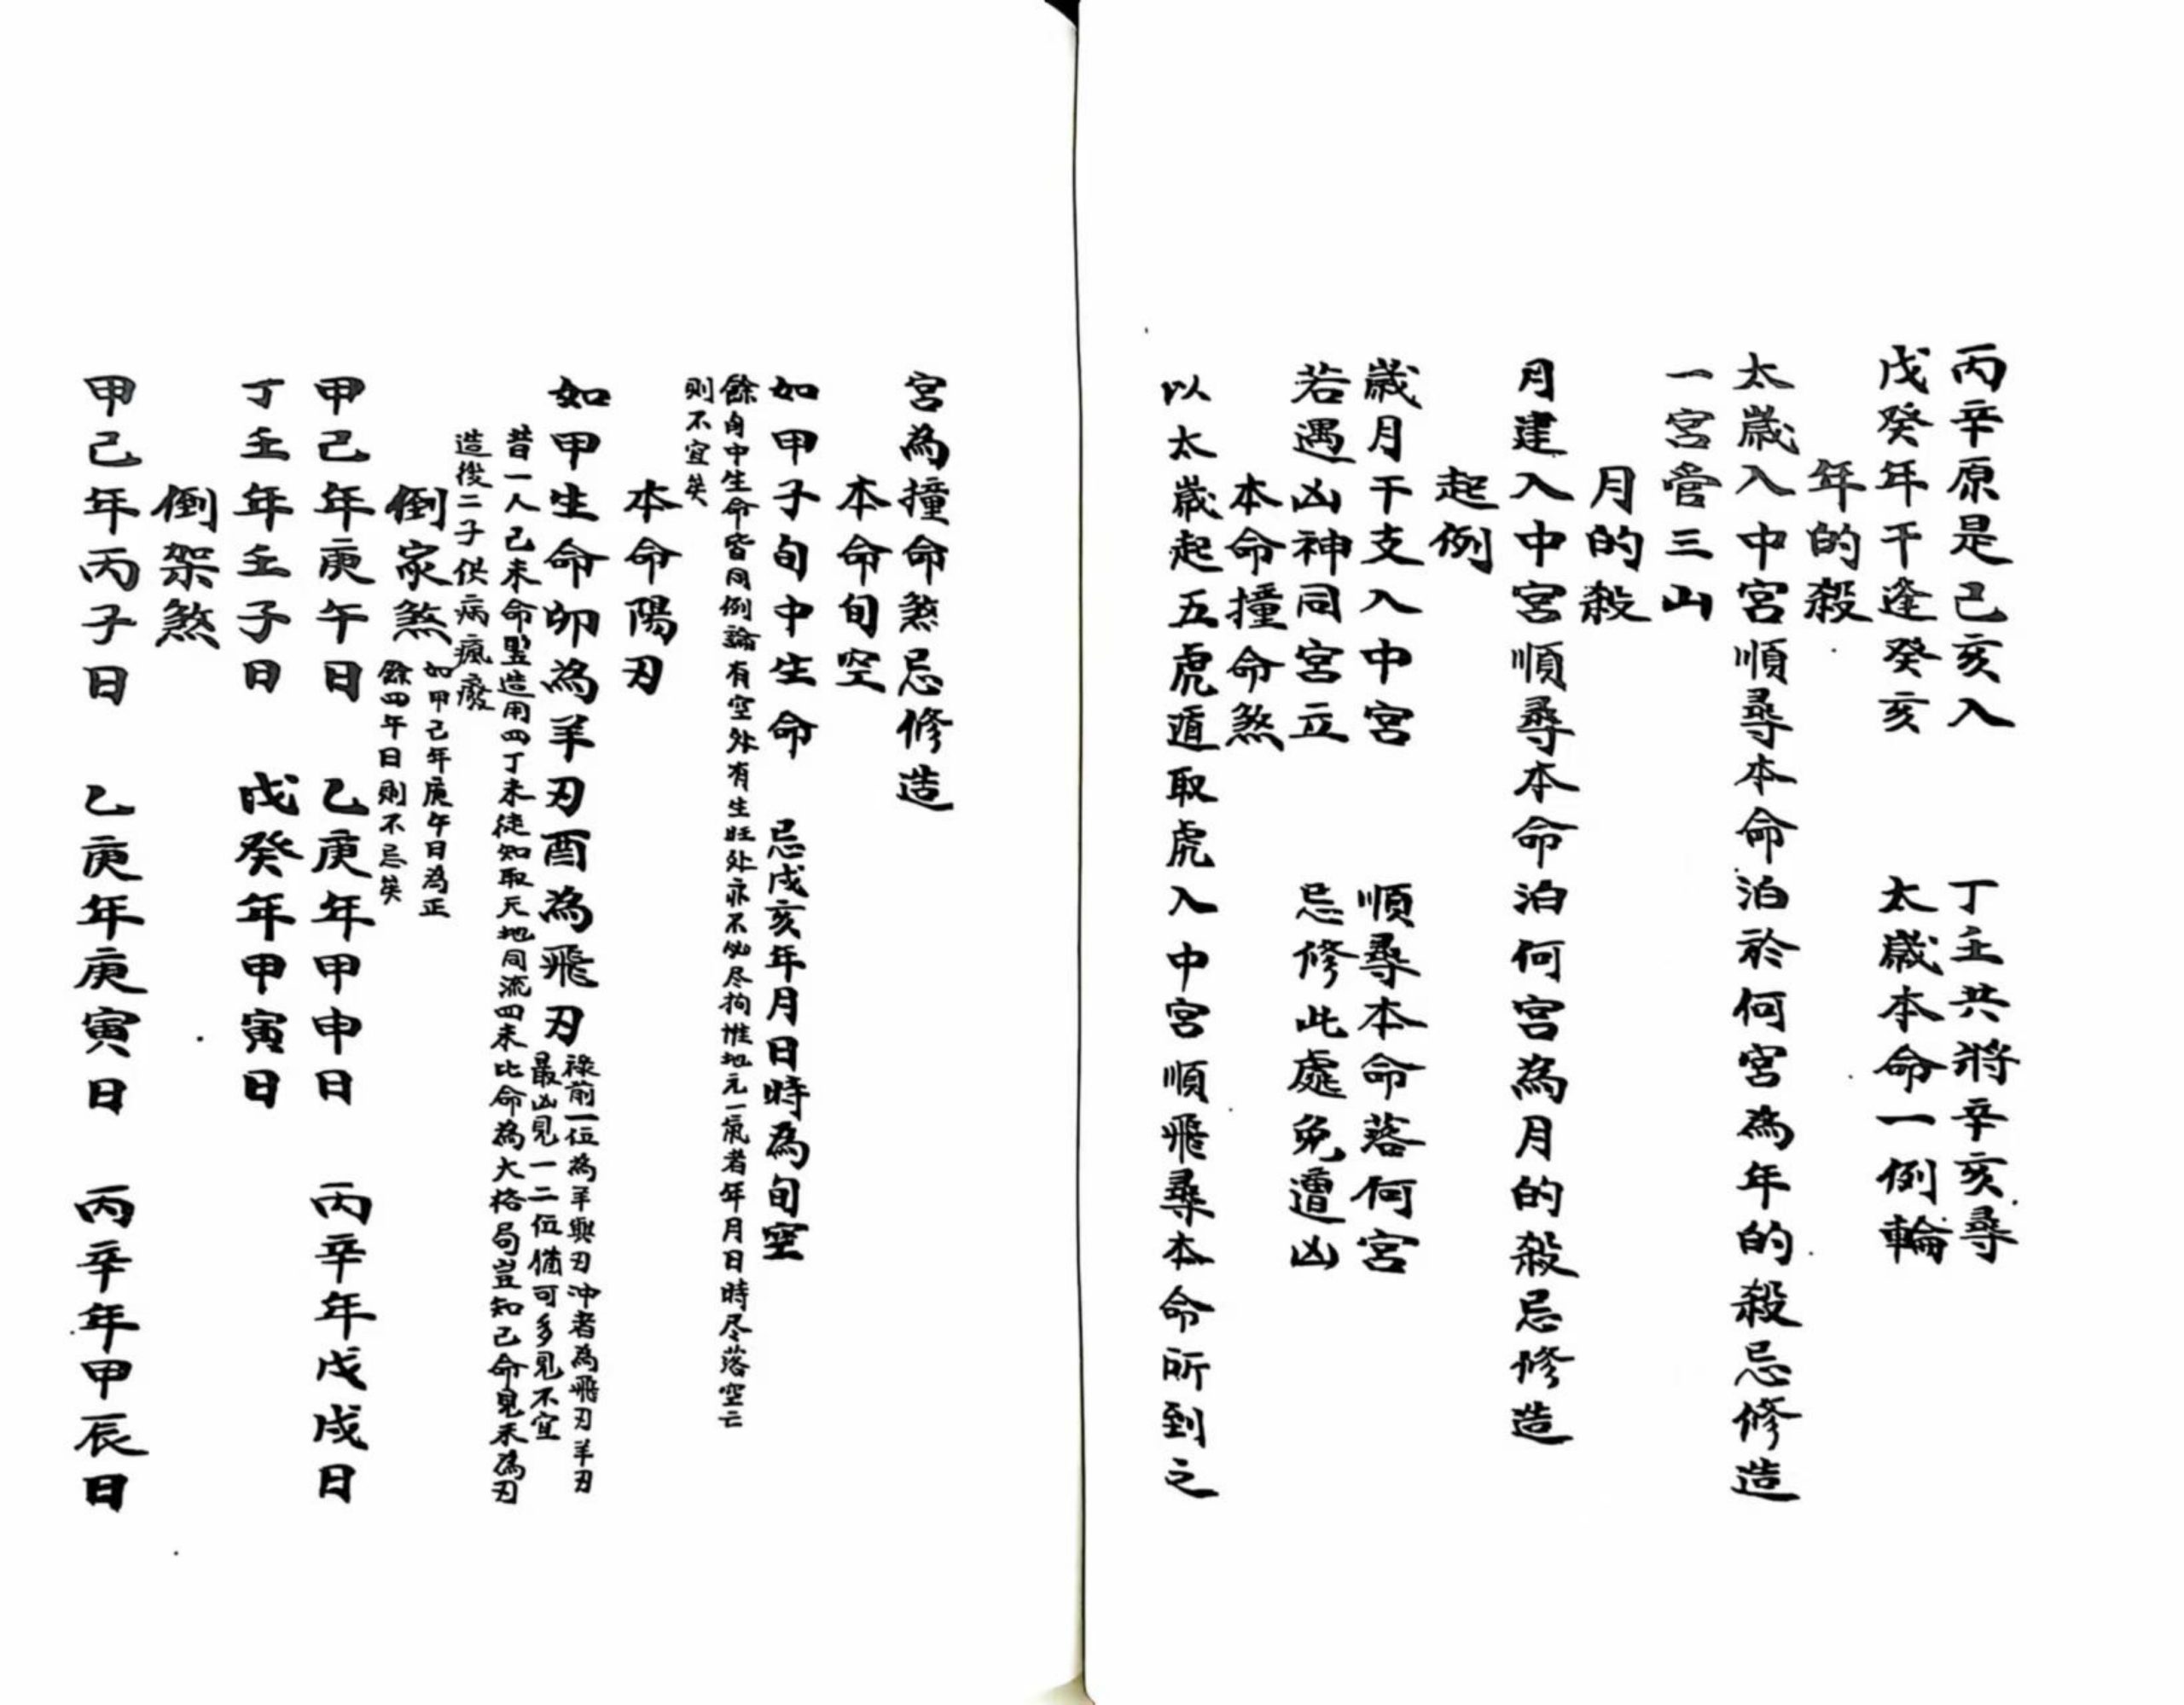 丙辛原是己亥入　丁壬共將辛亥尋
戊癸年干逢癸亥　太歲本命一例輪
年的殺
太歲入中宮順尋本命泊於何宮為年的殺忌修造
一宮管三山
月的殺
月建入中宮順尋本命泊何宮為月的殺忌修造
起例
歲月干支入中宮　順尋本命落何宮
若遇凶神同宮立　忌修此處免遭凶
本命撞命煞
以太歲起五虎遁取虎入中宮順飛尋本命所到之
宮為撞命煞忌修造
本命旬空
如甲子旬中生命　忌戌亥年月日時為旬空
餘旬中生命皆同例論有空处有生旺处亦不必尽拘惟地元一氣者年月日時尽落空亡
則不宜矣
本命陽刃
如甲生命卯為羊刃酉為飛刃
祿前一位為羊與刃冲者為飛刃羊刃
最凶見一二位猶可多見不宜
昔一人己未命豎造用四丁未徒知取天地同流四未比命為大格局豈知己命見未為刃
造後二子供病瘋癈
倒家煞
如甲己年庚午日為正
餘四年日則不忌矣
甲己年庚午日　乙庚年甲申日　丙辛年戊戌日
丁壬年壬子日　戊癸年甲寅日
倒架煞
甲己年丙子日　乙庚年庚寅日　丙辛年甲辰日